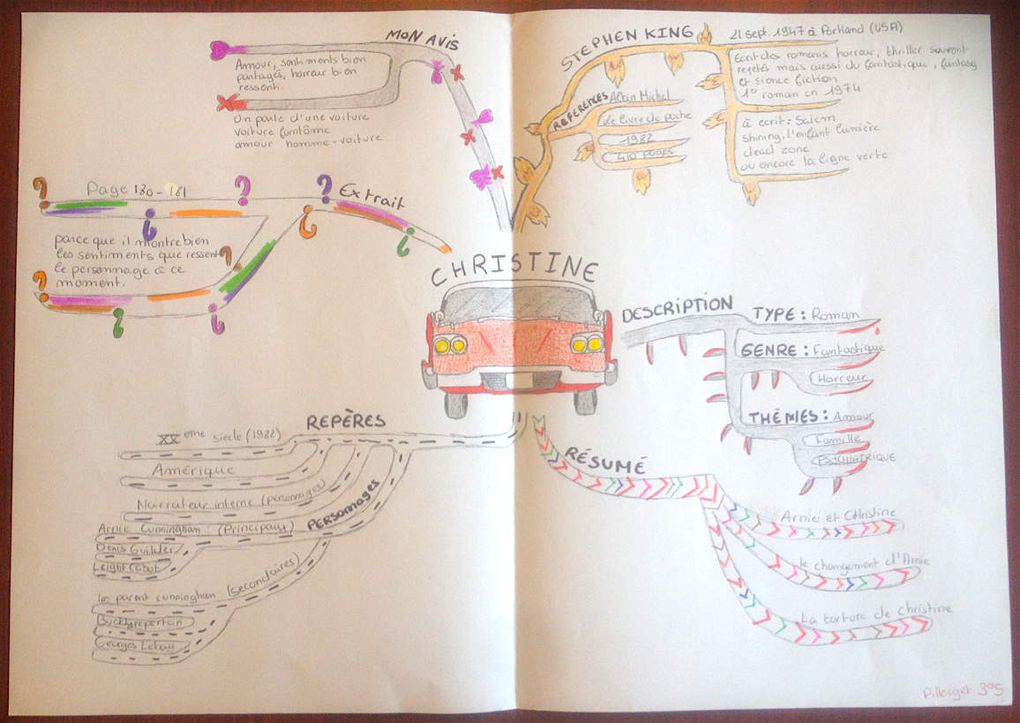 MON AVIS
Amour, sentiments bien
partagés, horreur bien
ressenti.
On parle d'une voiture
voiture fantôme
amour homme-voiture
STEPHEN KING
21 sept 1947 à Portland (USA)
Ecrit des romans horreur, thriller souvent
rejetés mais aussi du fantastique, fantasy
et sience fiction
1er roman en 1974
à ecrit: Salem
shining, l'enfant lumière
dead zone
ou encore la ligne verte
REFERENCES
Albin Michel
Le livre de poche
1982
410 pages
Extrait
Page 180-181
parce que il montre bien
les sentiments que ressent
le personnage à ce
moment.
CHRISTINE
DESCRIPTION
TYPE: Roman
GENRE: Fantastique
Horreur
THÈMES: Amour
Famille
PSYCHIATRIQUE
REPÈRES
XXeme siecle (1982)
Amérique
Narrateur interne (personnages)
PERSONNAGES
Arnie Cunningham: (Principaux)
Denis Guilder
Leight Cabot
les parent cunningham (secondaires)
Buddy repertain
Georges Lebay
RÉSUMÉ
Arnie et Christine
le changement d'Arnie
La torture de christine
Pillorget 3°5